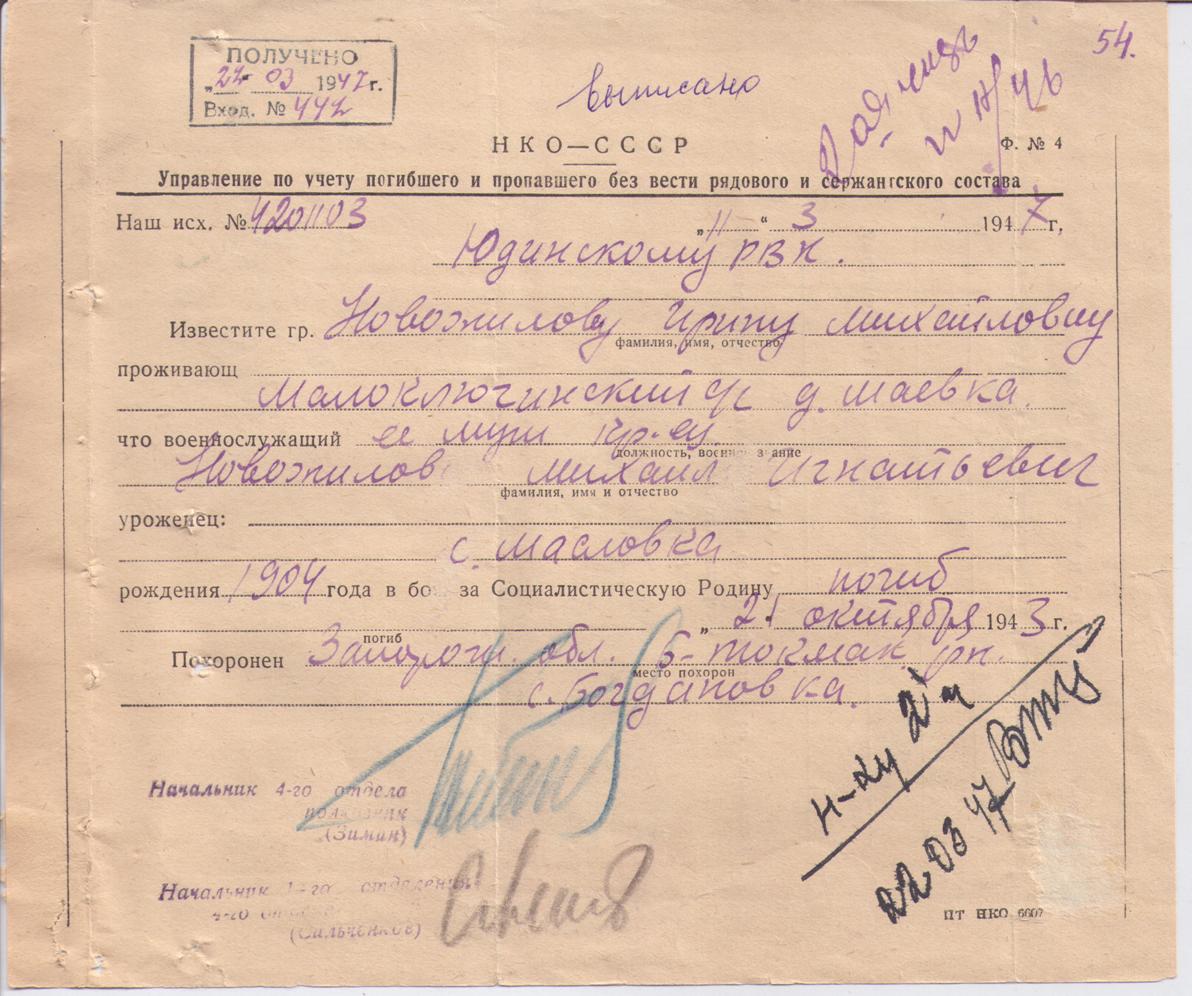 54.
ПОЛУЧЕНО
„22" 03 1947 г.
Вход. № 442
выписано
НКО—СССР
Ф. № 4
Управление по учету погибшего и пропавшего без вести рядового и сержантского состава
Наш исх. № 4201103 „11" 3 1947 г.
Юдинскому РВК.
Известите гр. Новожилову Ирину Михайловну
фамилия, имя, отчество
проживающ
Малоключинский д. Маевка.
что военнослужащий ее муж кр-ец.
должность, военное звание
Новожилов Михаил Игнатьевич
фамилия, имя и отчество
уроженец:
с. Масловка
рождения 1904 года в бою за Социалистическую Родину погиб
„21 октября 1943 г.
погиб
Похоронен Запорож. обл. Б-Токмак. рн.
место похорон
с. Богдановка.
Начальник 4-го отдела
полковник
(Зимин)
Начальник 1-го отделения
4-го отдела
(Сильченков)
22 03 47
ПТ НКО 6607